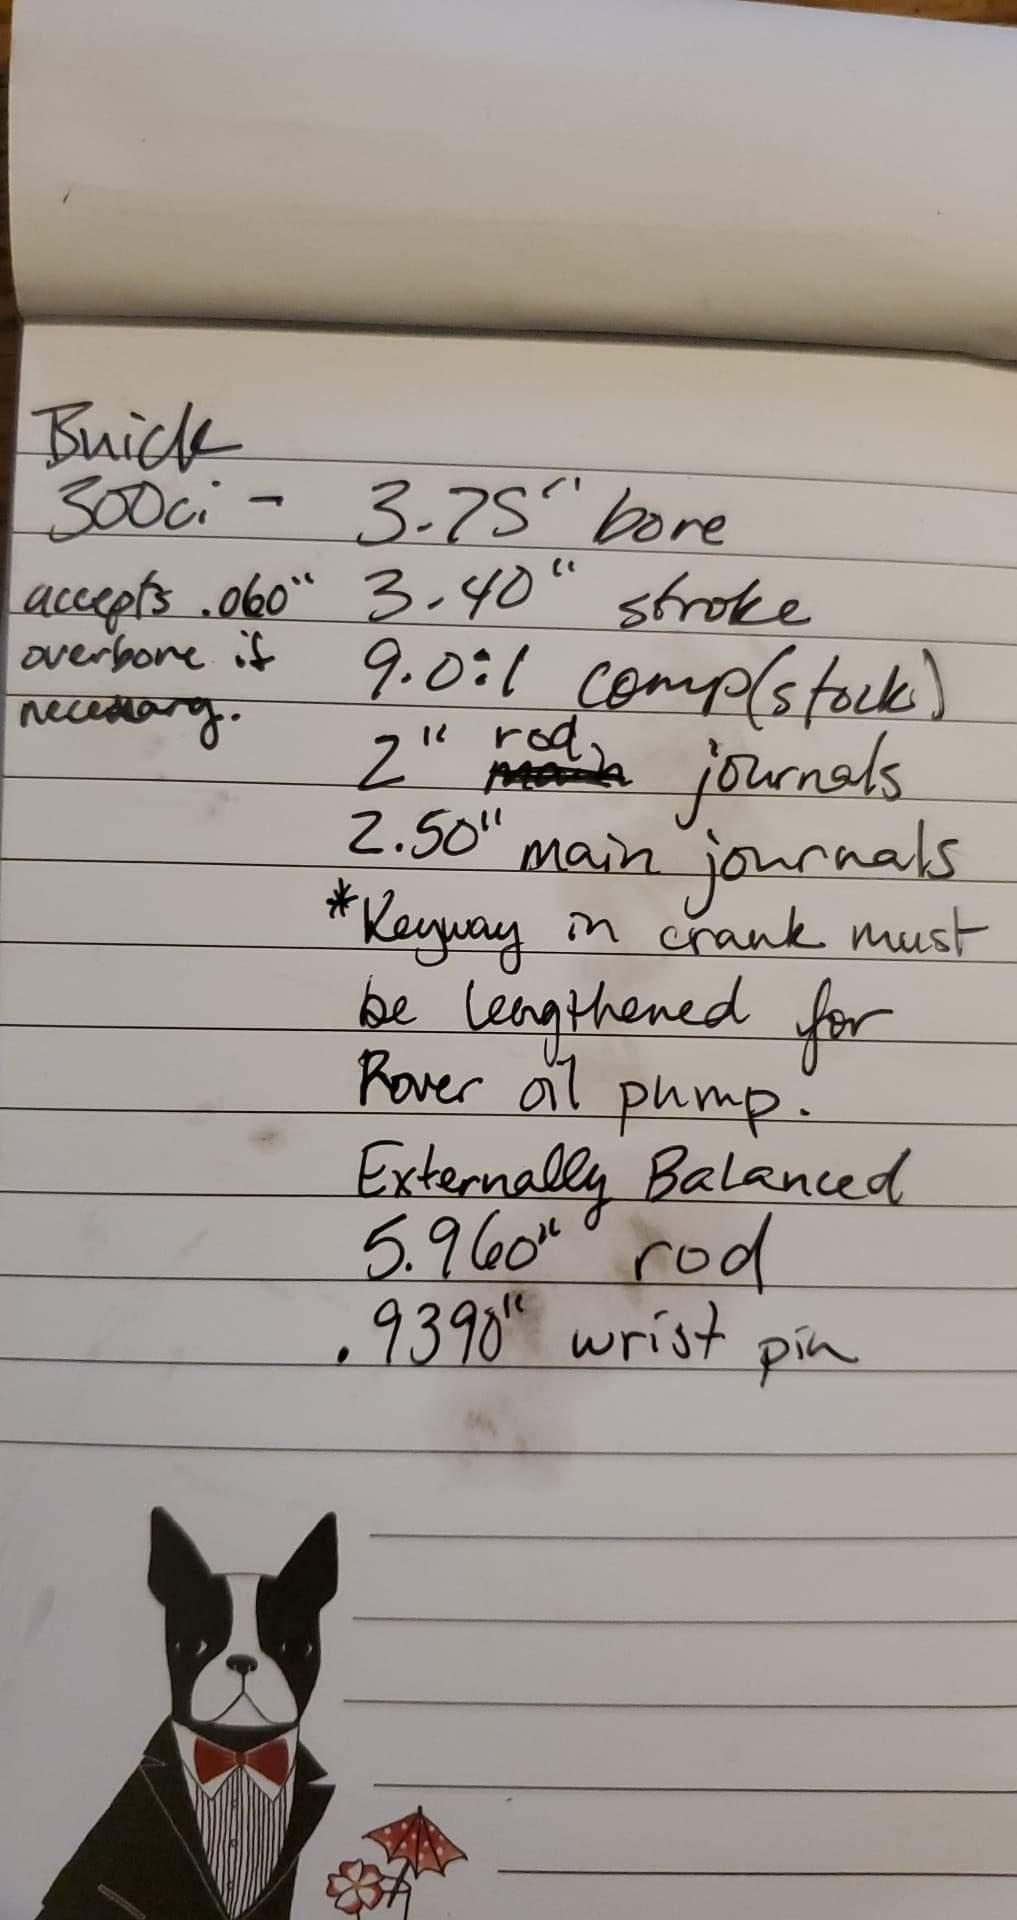 Buick
300ci - 3.75" bore
accepts .060" 3.40" stroke
overbore if 9.0:1 comp(stock)
necessary.
2" rod journals
2.50" main journals
*Keyway in crank must
be lengthened for
Rover oil pump.
Externally Balanced
5.960" rod
.9390" wrist pin